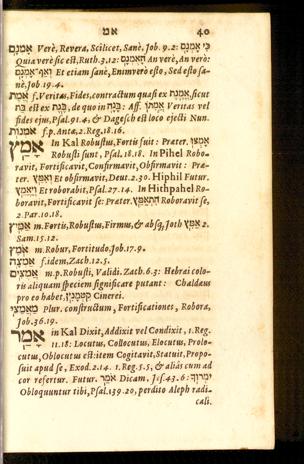 אמ 40
אָמְנָם Verè, Revera, Scilicet, Sanè. Job. 9.2: כִּי אָמְנָם
Quia verè sic est, Ruth. 3.12: הַאֻמְנָם An verè, An verò:
וְאַף־אָמְנָם Et etiam sanè, Enimverò esto, Sed esto sa-
nè, Job. 19.4.
אֱמֶת f. Veritas, Fides, contractum quasi ex אֲמֶנֶת, sicut
בַּת est ex בְּנֶת, de quo in בֵּן: Aff. אֲמִתּוֹ Veritas vel
fides ejus, Psal. 91.4, & Dagesch est loco ejecti Nun.
אֹמְנוֹת f. p. Antæ, 2. Reg. 18.16.
אָמַץ In Kal Robustus, Fortis fuit: Præter. אָמְצוּ
Robusti sunt, Psal. 18.18. In Pihel Robo-
ravit, Fortificavit, Confirmavit, Obfirmavit: Præ-
ter. וְאִמֵּץ Et obfirmavit, Deut. 2.30. Hiphil Futur.
וְיַאֲמֵץ Et roborabit, Psal. 27.14. In Hithpahel Ro-
boravit, Fortificavit se: Præter. הִתְאַמֵּץ Roboravit se,
2. Par. 10.18.
אַמִּיץ m. Fortis, Robustus, Firmus, & absq́; Joth אַמִּץ 2.
Sam. 15.12.
אֹמֶץ m. Robur, Fortitudo, Job. 17.9.
אַמְצָה f. idem, Zach. 12.5.
אֲמֻצִּים m. p. Robusti, Validi. Zach. 6.3: Hebræi colo-
ris aliquam speciem significare putant: Chaldæus
pro eo habet, קִטְמָנִין Cinerei.
מַאֲמַצֵּי Plur. constructum, Fortificationes, Robora,
Job. 36.19.
אָמַר in Kal Dixit, Addixit vel Condixit, 1. Reg.
11.18: Locutus, Collocutus, Elocutus, Prolo-
cutus, Oblocutus est: item Cogitavit, Statuit, Propo-
suit apud se, Exod. 2.14. 1. Reg. 5.5, & aliàs cum ad
cor refertur. Futur. אֹמַר Dicam. Jes. 43.6: יֹמְרוּךָ
Obloquuntur tibi, Psal. 139.20, perdito Aleph radi-
cali.